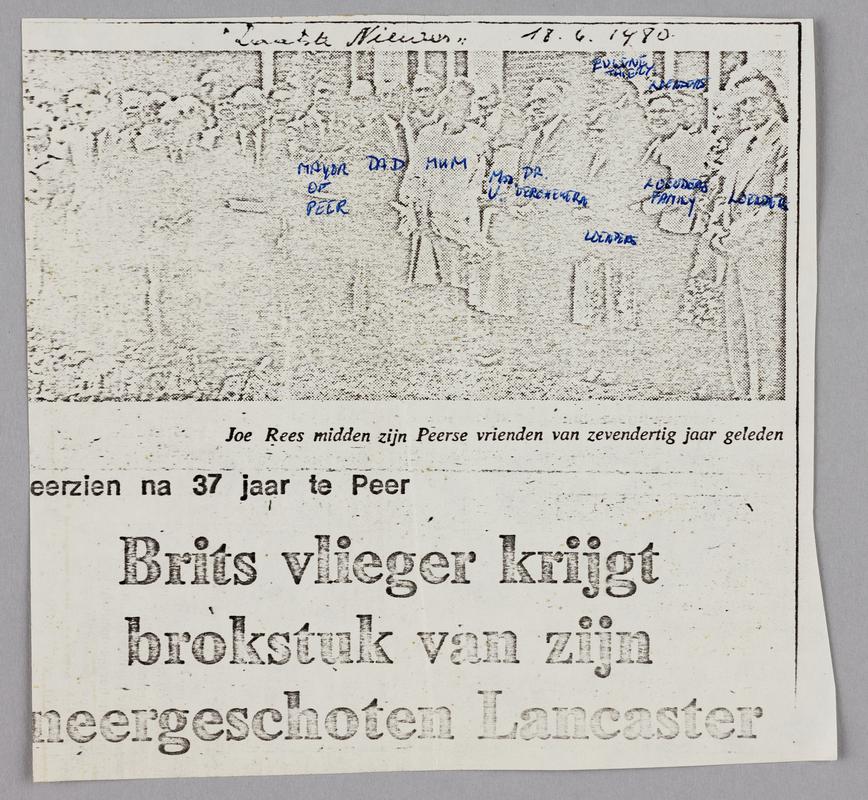 "Laatste Nieuws" 18.6.1980
EUGENE
THIERY
LOENDERS
MAYOR
OF
PEER
DAD
MUM
DR.
LOENDERS
FAMILY
LOENDERS
Joe Rees midden zijn Peerse vrienden van zevendertig jaar geleden
eerzien na 37 jaar te Peer
Brits vlieger krijgt
brokstuk van zijn
neergeschoten Lancaster